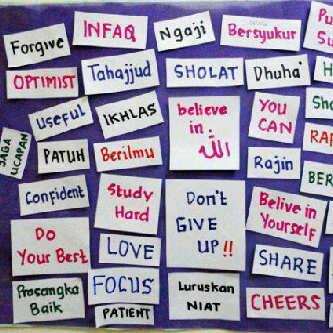 Forgive
INFAQ
Ngaji
Bersyukur
OPTIMIST
Tahajjud
SHOLAT
Dhuha'
useful
IKHLAS
believe
in
الله
YOU
CAN
JAGA
UCAPAN
PATUH
Berilmu
Rajin
Confident
Study
Hard
Don't
GIVE
UP!!
Belive in
Yourself
Do
Your Best
LOVE
SHARE
Prasangka
Baik
FOCUS
Luruskan
NIAT
CHEERS
PATIENT